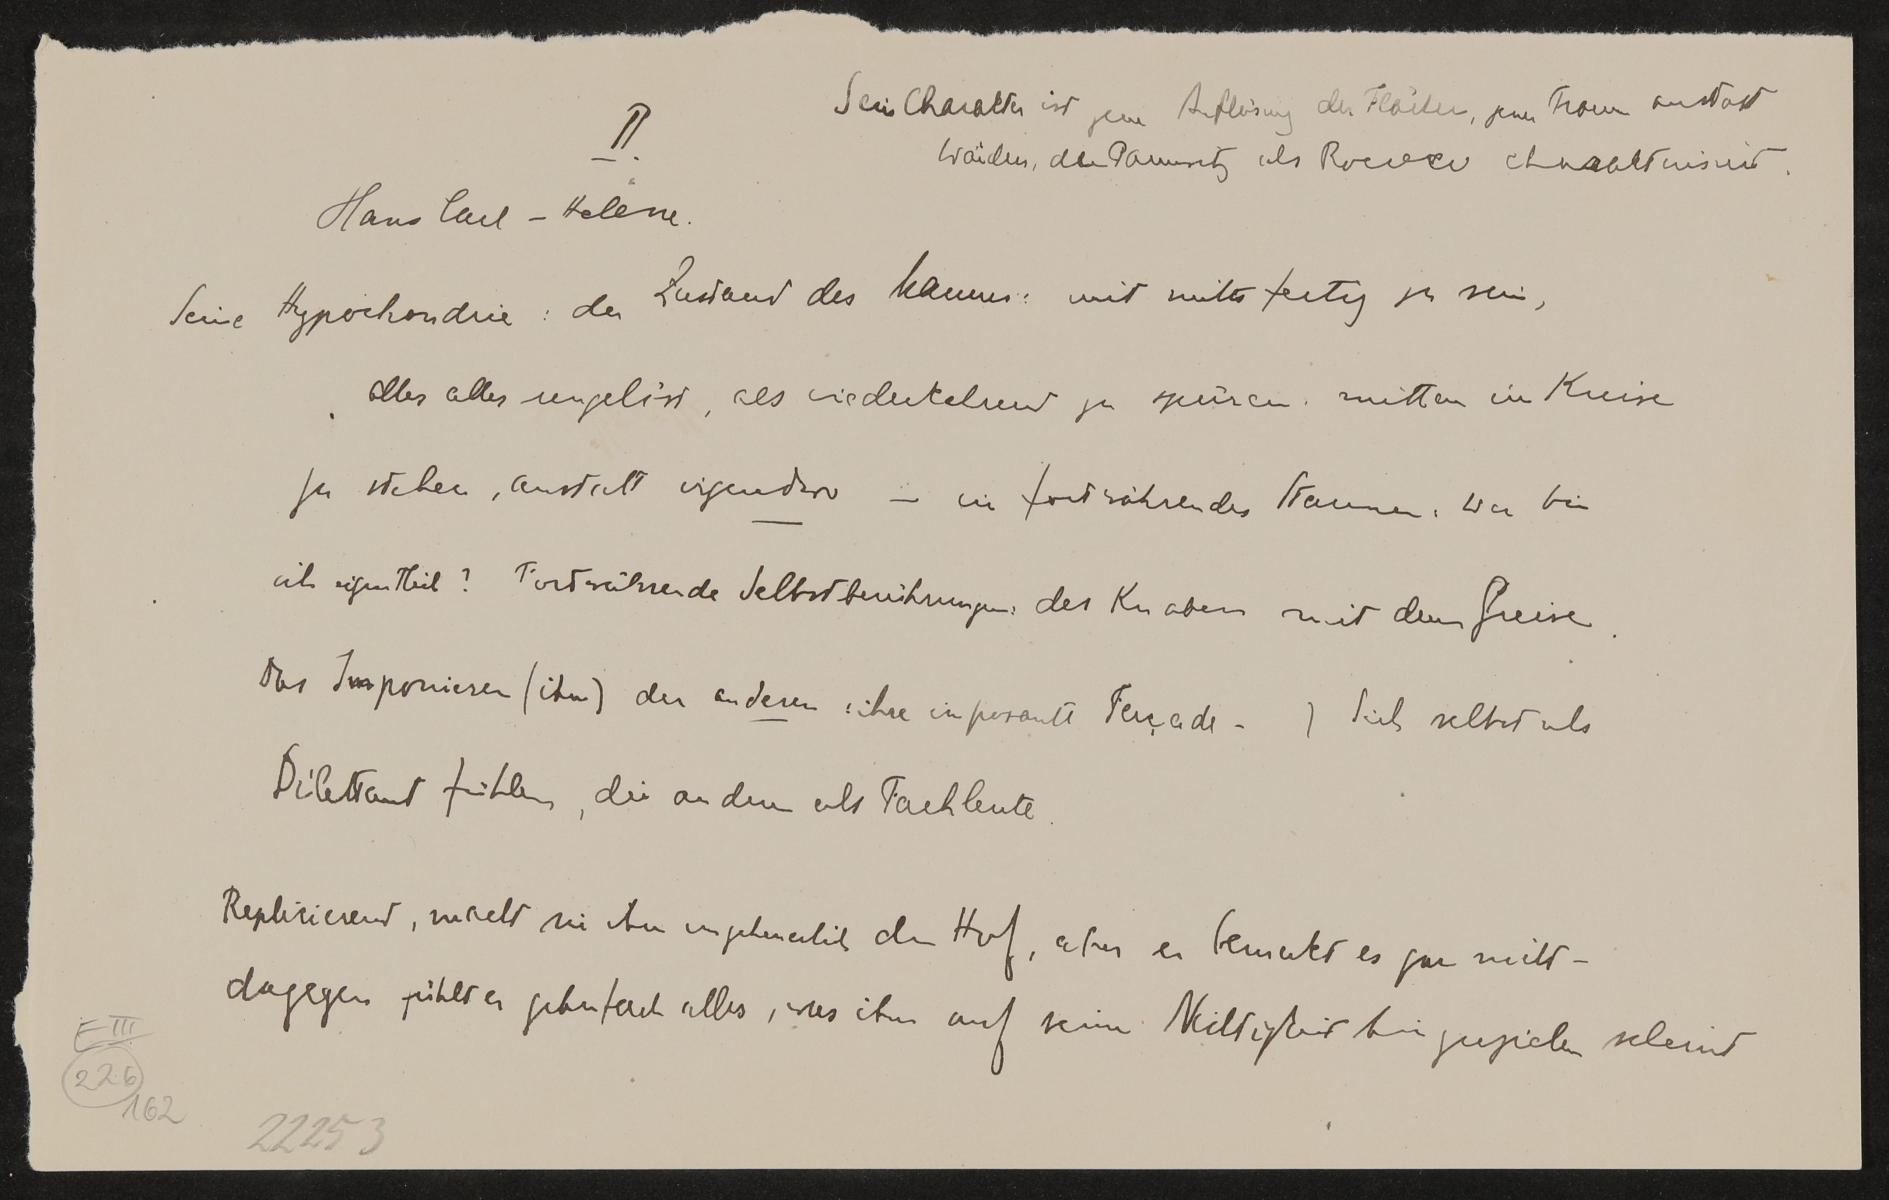 II.
Sein Charakter ist jene Auflösung der Flächen, jener Traum anstatt
Wänden, den Pannwitz als Rococo charakterisiert.
Hans Carl – Helene.
Seine Hypochondrie: der Zustand des Kaumes: mit nichts fertig zu sein,
alles alles ungelöst, als wiederkehrend zu spüren. mitten im Kreise
zu stehen, anstatt irgendwo – ein fortwährendes Staunen. Wer bin
ich eigentlich? Fortwährende Selbstberührungen: des Knaben mit dem Greise.
Das Imponieren (ihm) der anderen: ihre imposante Façade – ) Sich selbst als
Dilettant fühlen, die andern als Fachleute.
Replicierend, macht sie ihm ungeheuerlich den Hof, aber er bemerkt es gar nicht –
dagegen fühlt er zehnfach alles, was ihm auf seine Nichtigkeit hinzuzielen scheint
E III
226
162
22253